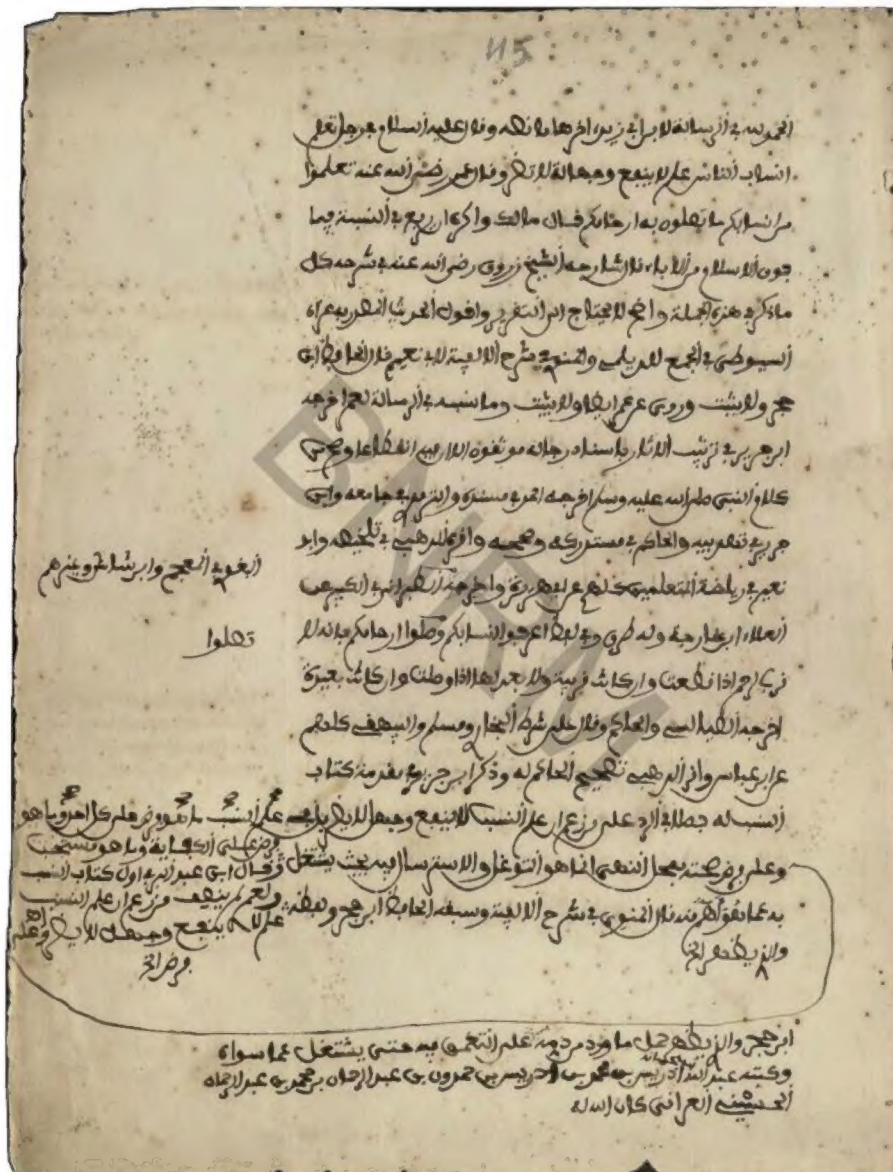 115
الحمد لله في الرسالة لابن أبي زيد، آخرها ما نصه وقال عليه السلام في رجل تعلم
انساب الناس علم لا ينفع وجهالة لا تضر وقال عمر رضي الله عنه تعلموا
من انسابكم ما تصلون به ارحامكم قال مالك واكره ان يرفع في النسبة فيما
دون الاسلام من الآباء، قال شارحه الشيخ زروق رضي الله عنه في شرحه كل
ما ذكر في هذه الجملة واضح لا يحتاج الى تقرير واقول الحديث المصدر به عزاه
السيوطي في الجمع للديلمي والمنوي في شرح الالفية لابي نعيم قال الحافظ ابن
حجر ولا يثبت وروي عن عمر ايضا ولا يثبت وما نسبه في الرسالة لعمر اخرجه
ابن جرير في ترتيب الآثار باسناد رجاله موثقون الا ان فيه انقطاعا وهو من
كلام النبي صلى الله عليه وسلم اخرجه احمد في مسنده والترمذي في جامعه وابن
جرير في تهذيبه والحاكم في مستدركه وصححه واقره الذهبي في تلخيصه وابو
البغوي في المعجم وابن شاهين وغيرهم
نعيم في رياضة المتعلمين كلهم عن ابي هريرة واخرجه الطبراني في الكبير عن
العلاء بن خارجة وله طرق وفي لفظ اعرفوا انسابكم وصلوا ارحامكم فانه لا
تصلوا
قرب لرحم اذا قطعت وان كانت قريبة ولا بعد لها اذا وصلت وان كانت بعيدة
اخرجه الطيالسي والحاكم وقال على شرط البخاري ومسلم والبيهقي كلهم
عن ابن عباس واقر الذهبي تصحيح الحاكم له وذكر ابن حزم في مقدمة كتاب
النسب له فصلا في الرد على من زعم ان علم النسب لا ينفع وجهل لا يضر بل في علم النسب ما هو فرض على كل احد وما هو
فرض على الكفاية وما هو مستحب
وعلى فرض صحته فمحل النهي انما هو التوغل والاسترسال فيه بحيث يشتغل
وقال ابن عبد البر في اول كتاب النسب
به عما هو اهم منه قال المنوي في شرح الالفية وسبقه الحافظ ابن حجر ولفظه
ولعمري لم ينصف من زعم ان علم النسب
علم لا ينفع وجهل لا يضر اهـ
والذي يظهر الخ
ابن حجر والذي يظهر حمل ما ورد من ذمه على التعمق فيه حتى يشتغل عما سواه
وكتبه عبد الله ادريس بن محمد بن ادريس بن حمدون بن عبد الرحمان بن محمد بن عبد الرحمان
الحسيني العراقي كان الله له